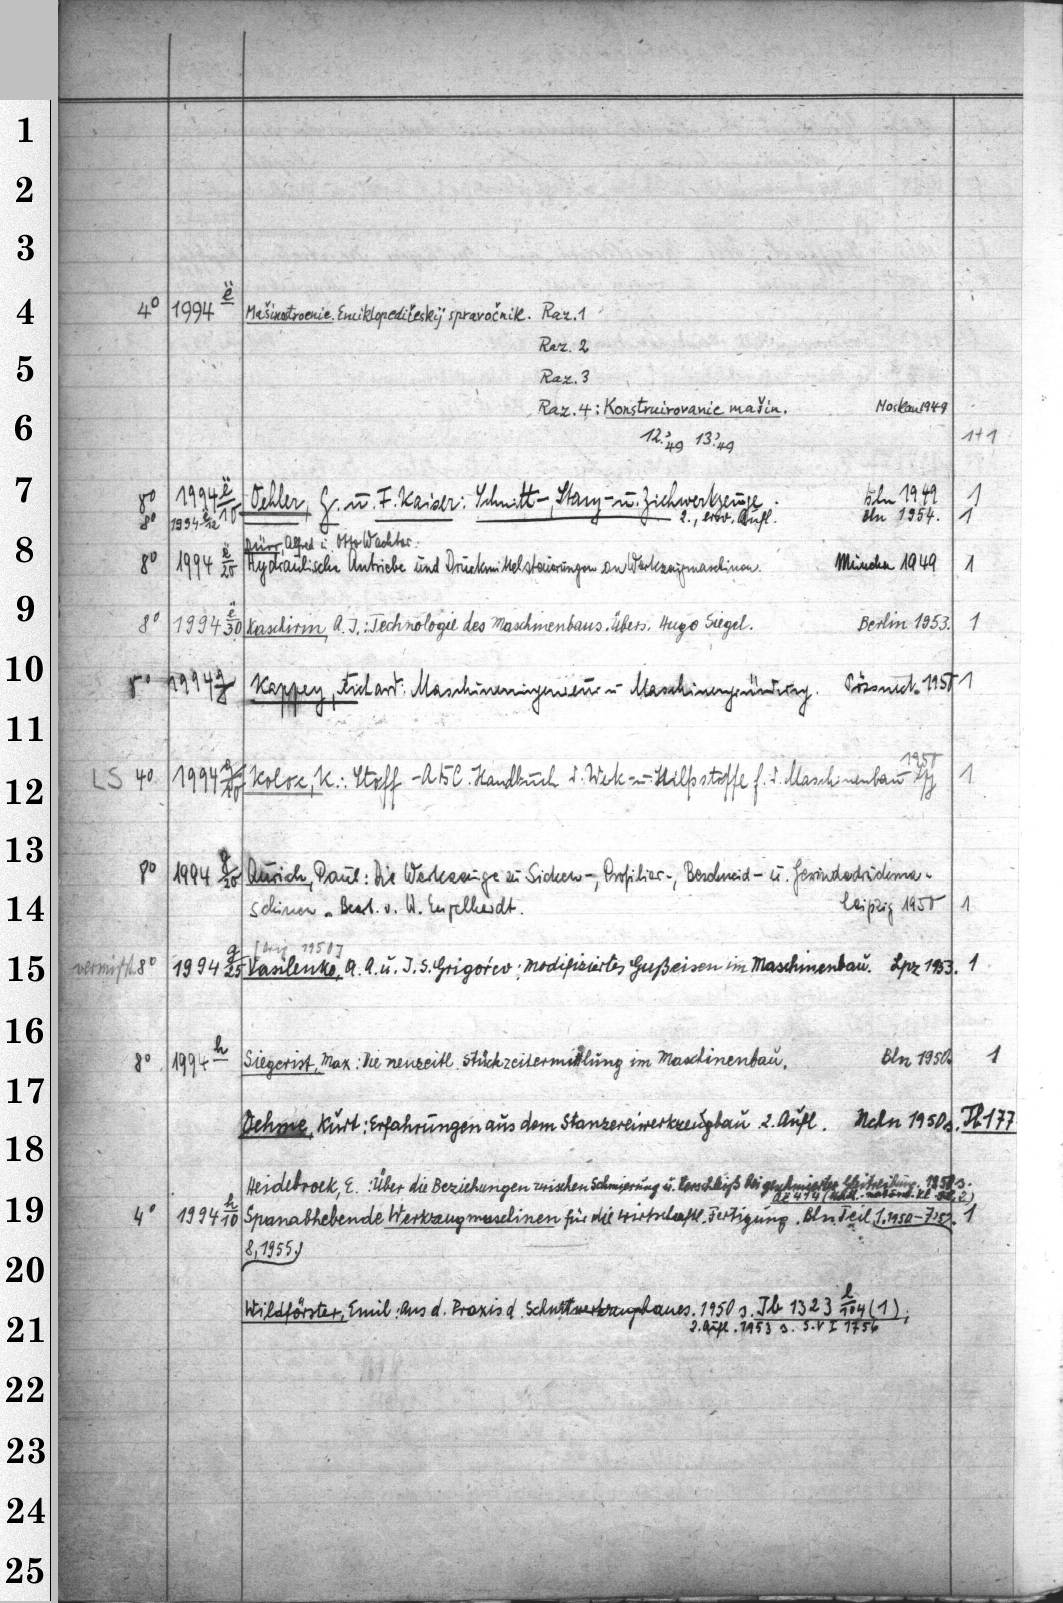 1
2
3
4
4° 1994 ë Mašinostroenie. Enciklopedičeskij spravočnik. Raz. 1
5
Raz. 2
Raz. 3
6
Raz. 4: Konstruirovanie mašin. Moskau 1949
12.'49 13.'49 1+1
7
8° 1994 ë/10 Oehler, G. u. F. Kaiser: Schnitt-, Stanz- u. Ziehwerkzeuge. Bln 1949 1
8° 1994 ë/12 2., erw. Aufl. Bln 1954. 1
8
Dürr, Alfred u. Otto Wachter:
8° 1994 ë/20 Hydraulische Antriebe und Druckmittelsteuerungen an Werkzeugmaschinen. München 1949 1
9
8° 1994 ë/30 Kaschirin, A. I.: Technologie des Maschinenbaus. Übers. Hugo Siegel. Berlin 1953. 1
10
8° 1994 g Kappey, : Maschineningenieur u. Maschinengründung. Pössneck 1950 1
11
1950
12
LS 4° 1994 g/10 Koloc, K.: Stoff-ABC. Handbuch d. Werk- u. Hilfsstoffe f. d. Maschinenbau Lpz 1
13
8° 1994 g/20 Aurich, Paul: Die Werkzeuge zu Sicken-, Profilier-, Beschneid- u. Gewindedrückma-
14
schinen. Bearb. v. W. Engelhardt. Leipzig 1950 1
1950]
15
vermißt 8° 1994 g/25 Vasilenko, A. A. u. I. S. Grigor'ev: Modifiziertes Gußeisen im Maschinenbau. Lpz 1953. 1
16
8° 1994 h Siegerist, Max: Die neuzeitl. Stückzeitermittlung im Maschinenbau. Bln 1950. 1
17
Oehme, Kurt: Erfahrungen aus dem Stanzereiwerkzeugbau 2. Aufl. Mchn 1950 s. Tb 177
18
Heidebroek, E.: Über die Beziehungen zwischen Schmierung u. Verschleiß bei geschmierter Gleitreibung. 1950 s.
19
4° 1994 h/10 Spanabhebende Werkzeugmaschinen für die wirtschaftl. Fertigung. Bln. Teil 1.1950-7.'52. 1
8, 1955.)
20
Wildförster, Emil: Aus d. Praxis d. Schnittwerkzeugbaues. 1950 s. Tb 1323 l/104 (1);
21
2. Aufl. 1953 s. S. V I 1756
22
23
24
25